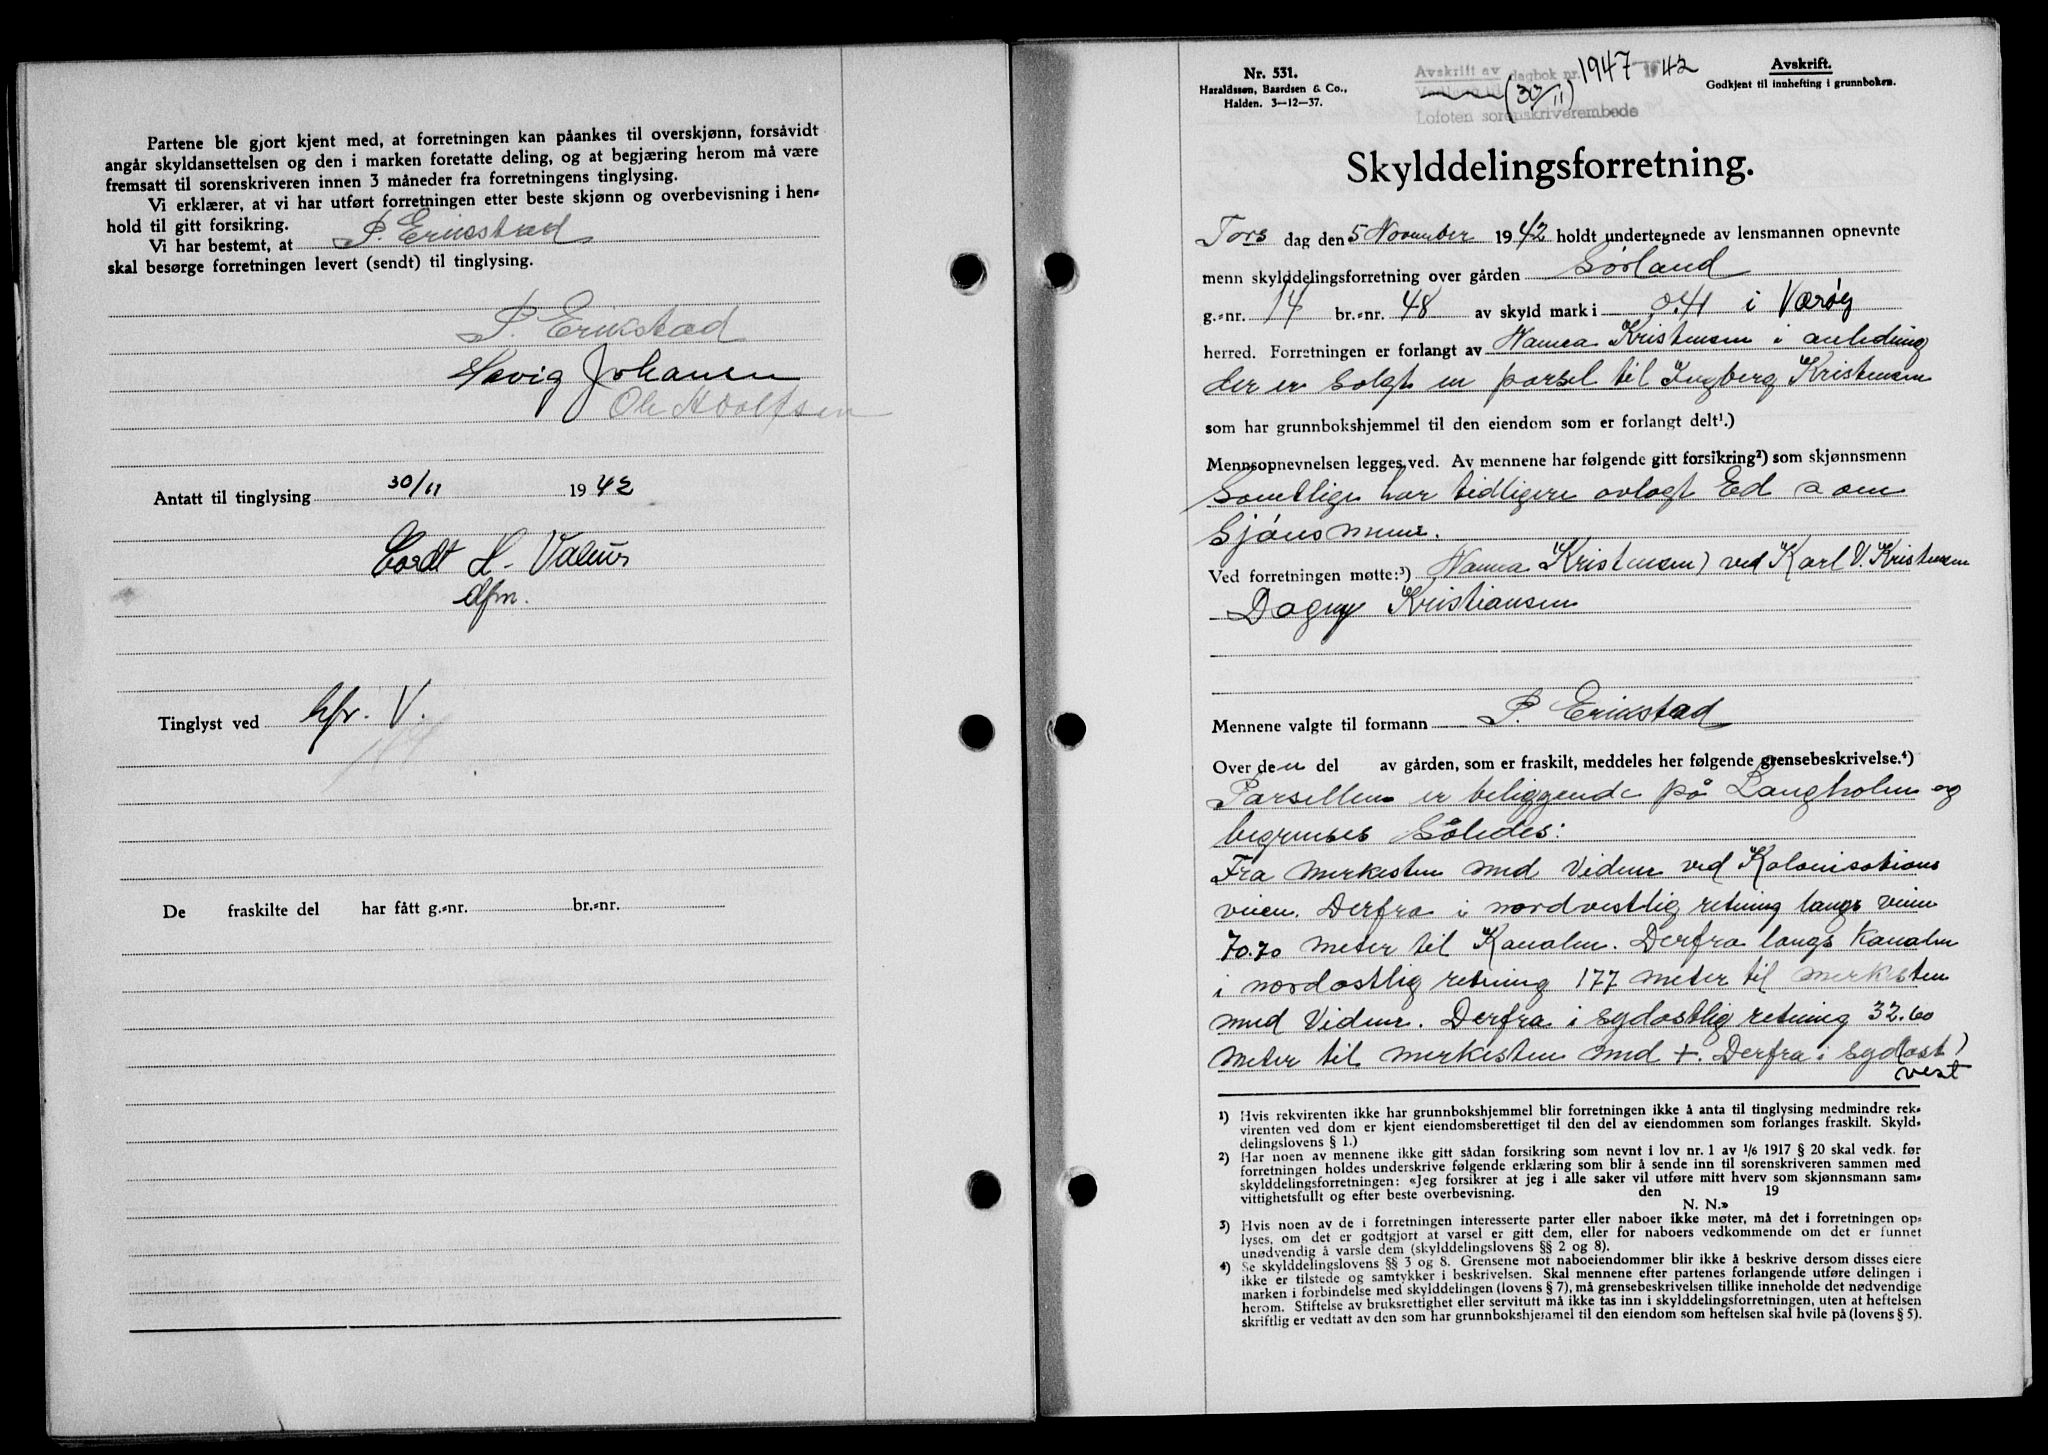 Partene ble gjort kjent med, at forretningen kan påankes til overskjønn, forsåvidt
angår skyldansettelsen og den i marken foretatte deling, og at begjæring herom må være
fremsatt til sorenskriveren innen 3 måneder fra forretningens tinglysing.
Vi erklærer, at vi har utført forretningen etter beste skjønn og overbevisning i hen-
hold til gitt forsikring.
Vi har bestemt, at P. Erikstad
skal besørge forretningen levert (sendt) til tinglysing.
P. Erikstad
Hevig Johansen
Ole Adolfsen
Antatt til tinglysing 30/11 1942
Cordt H. Valeur
dfm.
Tinglyst ved hfr. V.
De fraskilte del har fått g.-nr. br.-nr.
Nr. 531.
Haraldssøn, Baardsen & Co.,
Halden. 3-12-37.
Avskrift av dagbok nr. 1947 1942
(30/11)
Lofoten sorenskriverembede
Avskrift.
Godkjent til innhefting i grunnboken.
Skylddelingsforretning.
Tors dag den 5 November 1942 holdt undertegnede av lensmannen opnevnte
menn skylddelingsforretning over gården Sørland
g.-nr. 14 br.-nr. 48 av skyld mark i 0.41 i Værøy
herred. Forretningen er forlangt av Nanna Kristensen i anledning
der er solgt en parsel til Ingberg Kristensen
som har grunnbokshjemmel til den eiendom som er forlangt delt¹.)
Mennsopnevnelsen legges ved. Av mennene har følgende gitt forsikring²) som skjønnsmenn
Samtlige har tidligere avlagt Ed som
Sjønsmenn.
Ved forretningen møtte:³) Nanna Kristensen) ved Karl V. Kristensen
Dagny Kristiansen
Mennene valgte til formann P. Erikstad
Over den del av gården, som er fraskilt, meddeles her følgende grensebeskrivelse.⁴)
Parsellen er beliggende på Langholmen og
begrenses Således:
Fra Merkesten med Vidner ved Kolonisations
veien. Derfra i nordvestlig retning langs veien
70.70 meter til Kanalen. Derfra langs Kanalen
i nordostlig retning 177 meter til merkesten
med Vidner. Derfra i sydostlig retning 32.60
Meter til merkesten med +. Derfra i syd(ost)
vest
1) Hvis rekvirenten ikke har grunnbokshjemmel blir forretningen ikke å anta til tinglysing medmindre rek-
virenten ved dom er kjent eiendomsberettiget til den del av eiendommen som forlanges fraskilt. Skyld-
delingslovens § 1.)
2) Har noen av mennene ikke gitt sådan forsikring som nevnt i lov nr. 1 av 1/6 1917 § 20 skal vedk. før
forretningen holdes underskrive følgende erklæring som blir å sende inn til sorenskriveren sammen med
skylddelingsforretningen: «Jeg forsikrer at jeg i alle saker vil utføre mitt hverv som skjønnsmann sam-
vittighetsfullt og efter beste overbevisning. den 19
N. N.»
3) Hvis noen av de i forretningen interesserte parter eller naboer ikke møter, må det i forretningen op-
lyses, om det er godtgjort at varsel er gitt dem, eller for naboers vedkommende om det er funnet
unødvendig å varsle dem (skylddelingslovens §§ 2 og 8).
4) Se skylddelingslovens §§ 3 og 8. Grensene mot naboeiendommer blir ikke å beskrive dersom disses eiere
ikke er tilstede og samtykker i beskrivelsen. Skal mennene efter partenes forlangende utføre delingen i
marken i forbindelse med skylddelingen (lovens § 7), må grensebeskrivelsen tillike inneholde det nødvendige
herom. Stiftelse av bruksrettighet eller servitutt må ikke tas inn i skylddelingsforretningen, uten at heftelsen
skriftlig er vedtatt av den som har grunnbokshjemmel til den eiendom som heftelsen skal hvile på (lovens § 5).